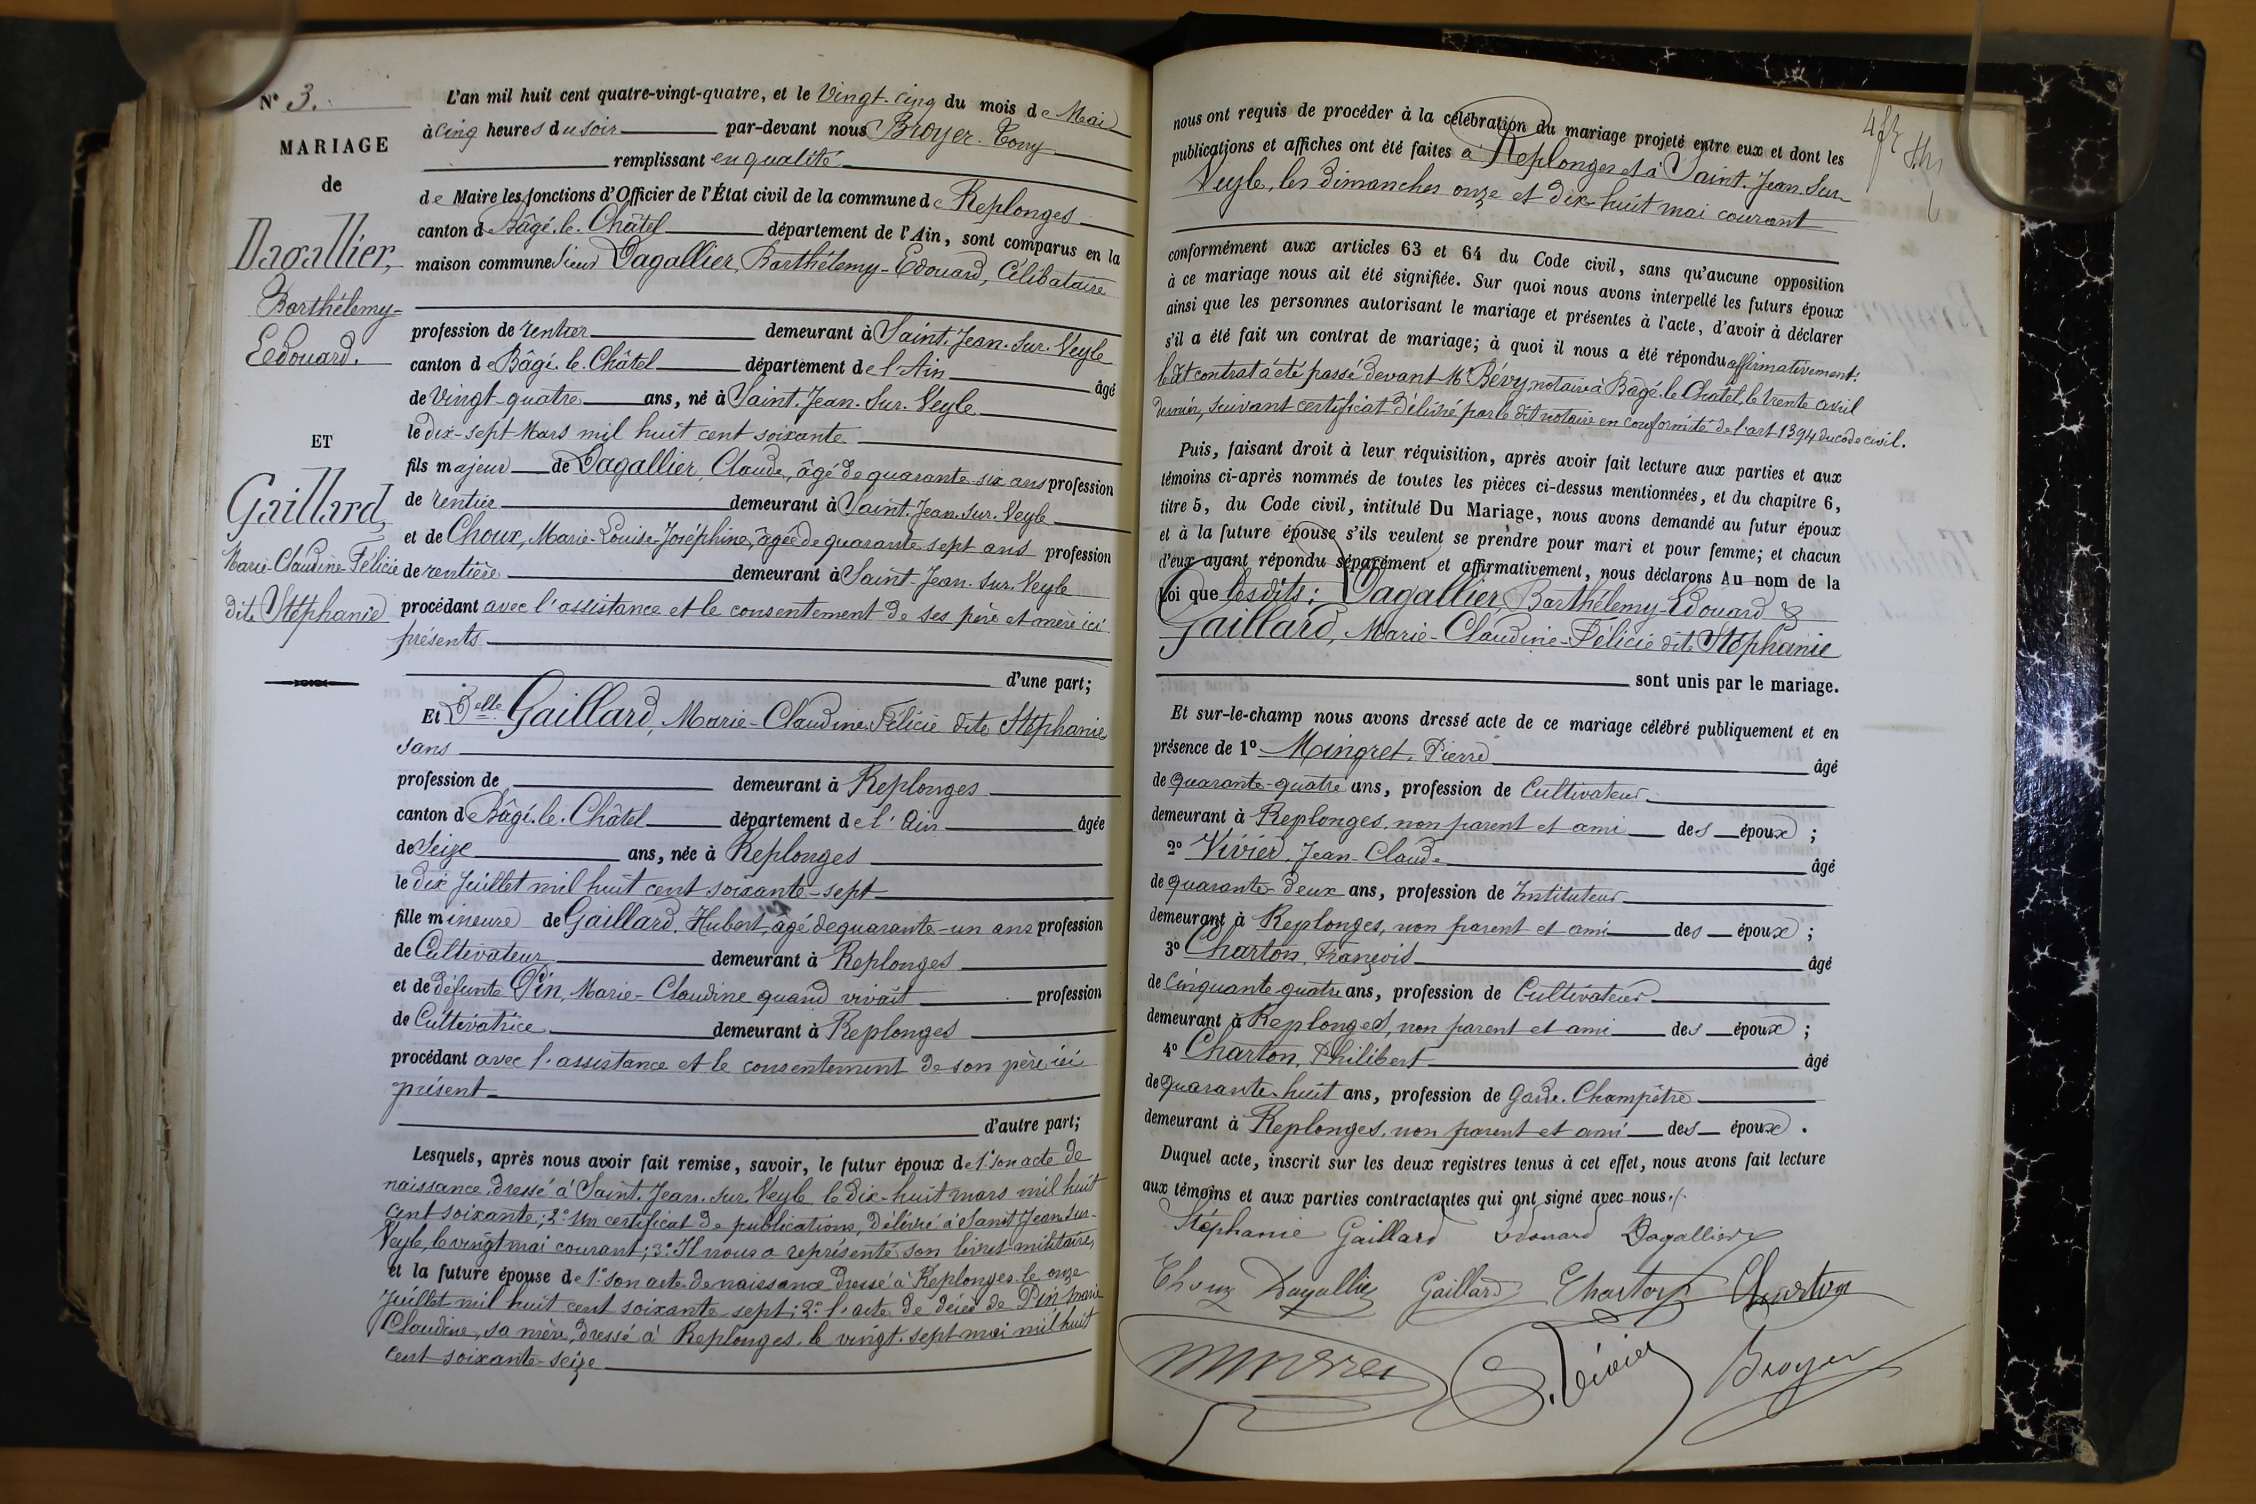 N° 3.
MARIAGE
de
Dagallier,
Barthélemy-
Edouard.
ET
Gaillard,
Marie-Claudine-Félicie
dite Stéphanie
L'an mil huit cent quatre-vingt-quatre, et le Vingt-cinq du mois de Mai
à cinq heures du soir par-devant nous Broyer Tony
remplissant en qualité
de Maire les fonctions d'Officier de l'État civil de la commune de Replonges
canton de Bâgé-le-Châtel département de l'Ain, sont comparus en la
maison commune Sieur Dagallier, Barthélemy-Edouard, Célibataire
profession de rentier demeurant à Saint-Jean-sur-Veyle
canton de Bâgé-le-Châtel département de l'Ain âgé
de vingt-quatre ans, né à Saint-Jean-sur-Veyle
le dix-sept Mars mil huit cent soixante
fils majeur de Dagallier, Claude, âgé de quarante-six ans profession
de rentier demeurant à Saint-Jean-sur-Veyle
et de Choux, Marie-Louise-Joséphine, âgée de quarante-sept ans profession
de rentière demeurant à Saint-Jean-sur-Veyle
procédant avec l'assistance et le consentement de ses père et mère ici
présents
d'une part;
Et Delle Gaillard, Marie-Claudine-Félicie dite Stéphanie
sans
profession de demeurant à Replonges
canton de Bâgé-le-Châtel département de l'Ain âgée
de Seize ans, née à Replonges
le dix Juillet mil huit cent soixante-sept
fille mineure de Gaillard, Hubert, âgé de quarante-un ans profession
de Cultivateur demeurant à Replonges
et de défunte Pin, Marie-Claudine quand vivait profession
de Cultivatrice demeurant à Replonges
procédant avec l'assistance et le consentement de son père ici
présent
d'autre part;
Lesquels, après nous avoir fait remise, savoir, le futur époux de 1° son acte de
naissance, dressé à Saint-Jean-sur-Veyle le dix-huit mars mil huit
cent soixante; 2° un certificat de publications, délivré à Saint-Jean-sur-
Veyle, le vingt mai courant; 3° Il nous a représenté son livret militaire,
et la future épouse de 1° son acte de naissance dressé à Replonges le onze
Juillet mil huit cent soixante-sept; 2° l'acte de décès de Pin Marie
Claudine, sa mère, dressé à Replonges, le vingt-sept mai mil huit
cent soixante-seize
nous ont requis de procéder à la célébration du mariage projeté entre eux et dont les
publications et affiches ont été faites à Replonges et à Saint-Jean-sur-
Veyle, les dimanches onze et dix-huit mai courant
conformément aux articles 63 et 64 du Code civil, sans qu'aucune opposition
à ce mariage nous ait été signifiée. Sur quoi nous avons interpellé les futurs époux
ainsi que les personnes autorisant le mariage et présentes à l'acte, d'avoir à déclarer
s'il a été fait un contrat de mariage; à quoi il nous a été répondu affirmativement:
ledit contrat a été passé devant Me Bévy, notaire à Bagé-le-Chatel, le trente avril
dernier, suivant certificat délivré par le dit notaire en conformité de l'art 1394 du code civil.
Puis, faisant droit à leur réquisition, après avoir fait lecture aux parties et aux
témoins ci-après nommés de toutes les pièces ci-dessus mentionnées, et du chapitre 6,
titre 5, du Code civil, intitulé Du Mariage, nous avons demandé au futur époux
et à la future épouse s'ils veulent se prendre pour mari et pour femme; et chacun
d'eux ayant répondu séparément et affirmativement, nous déclarons Au nom de la
Loi que lesdits: Dagallier, Barthélemy-Edouard &
Gaillard, Marie-Claudine-Félicie dite Stéphanie
sont unis par le mariage.
Et sur-le-champ nous avons dressé acte de ce mariage célébré publiquement et en
présence de 1° Mingret, Pierre âgé
de quarante-quatre ans, profession de Cultivateur
demeurant à Replonges, non parent et ami des époux;
2° Vivier, Jean-Claude âgé
de quarante-deux ans, profession de Instituteur
demeurant à Replonges, non parent et ami des époux;
3° Charton, François âgé
de Cinquante-quatre ans, profession de Cultivateur
demeurant à Replonges, non parent et ami des époux;
4° Charton, Philibert âgé
de quarante-huit ans, profession de Garde-Champêtre
demeurant à Replonges, non parent et ami des époux.
Duquel acte, inscrit sur les deux registres tenus à cet effet, nous avons fait lecture
aux témoins et aux parties contractantes qui ont signé avec nous.
Stéphanie Gaillard Edouard Dagallier
Choux Dagallier Gaillard Charton Charton
Vivier Broyer